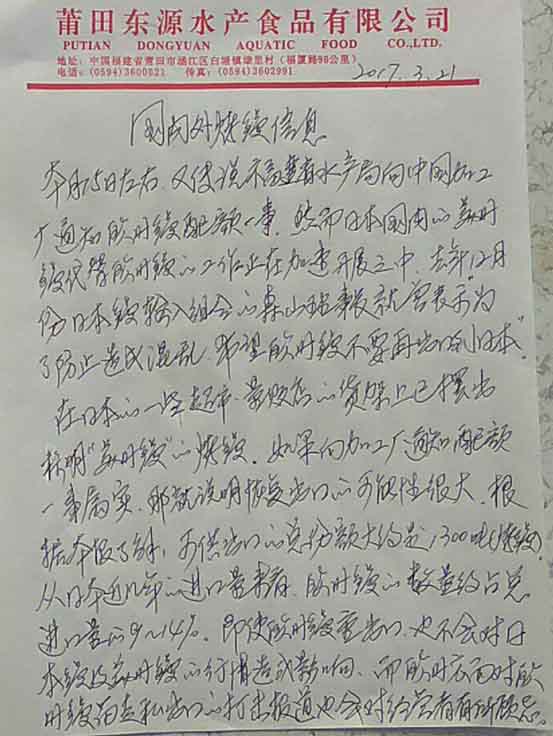 莆田东源水产食品有限公司
PUTIAN DONGYUAN AQUATIC FOOD CO.,LTD.
地址：中国福建省莆田市涵江区白塘镇埭里村（福厦路98公里）
电话：(0594)3600521 传真：(0594)3602991
2017.3.21
国内外烤鳗信息
本月15日左右，又传说福建省水产局向中国加工
厂通知欧时鳗配额一事。然而日本国内的美时
鳗代替欧时鳗的工作正在加速开展之中，去年12月
份日本鳗输入组合的森山理事长就曾表示"为
了防止造成混乱，希望欧时鳗不要再出口到日本"
在日本的一些超市、量贩店的货架上已摆出
标明"美时鳗"的烤鳗。如果向加工厂通知配额
一事属实，那就说明恢复出口的可能性很大。根
据本报了解，可供出口的总份额大约是1300吨(烤鳗)
从日本近几年的进口量来看，欧时鳗的数量约占总
进口量的9~14%。即使欧时鳗重出口，也不会对日
本鳗及美时鳗的行情造成影响。而欧时方面对欧
时鳗苗走私出口的打击报道也会对经营者有所顾忌。